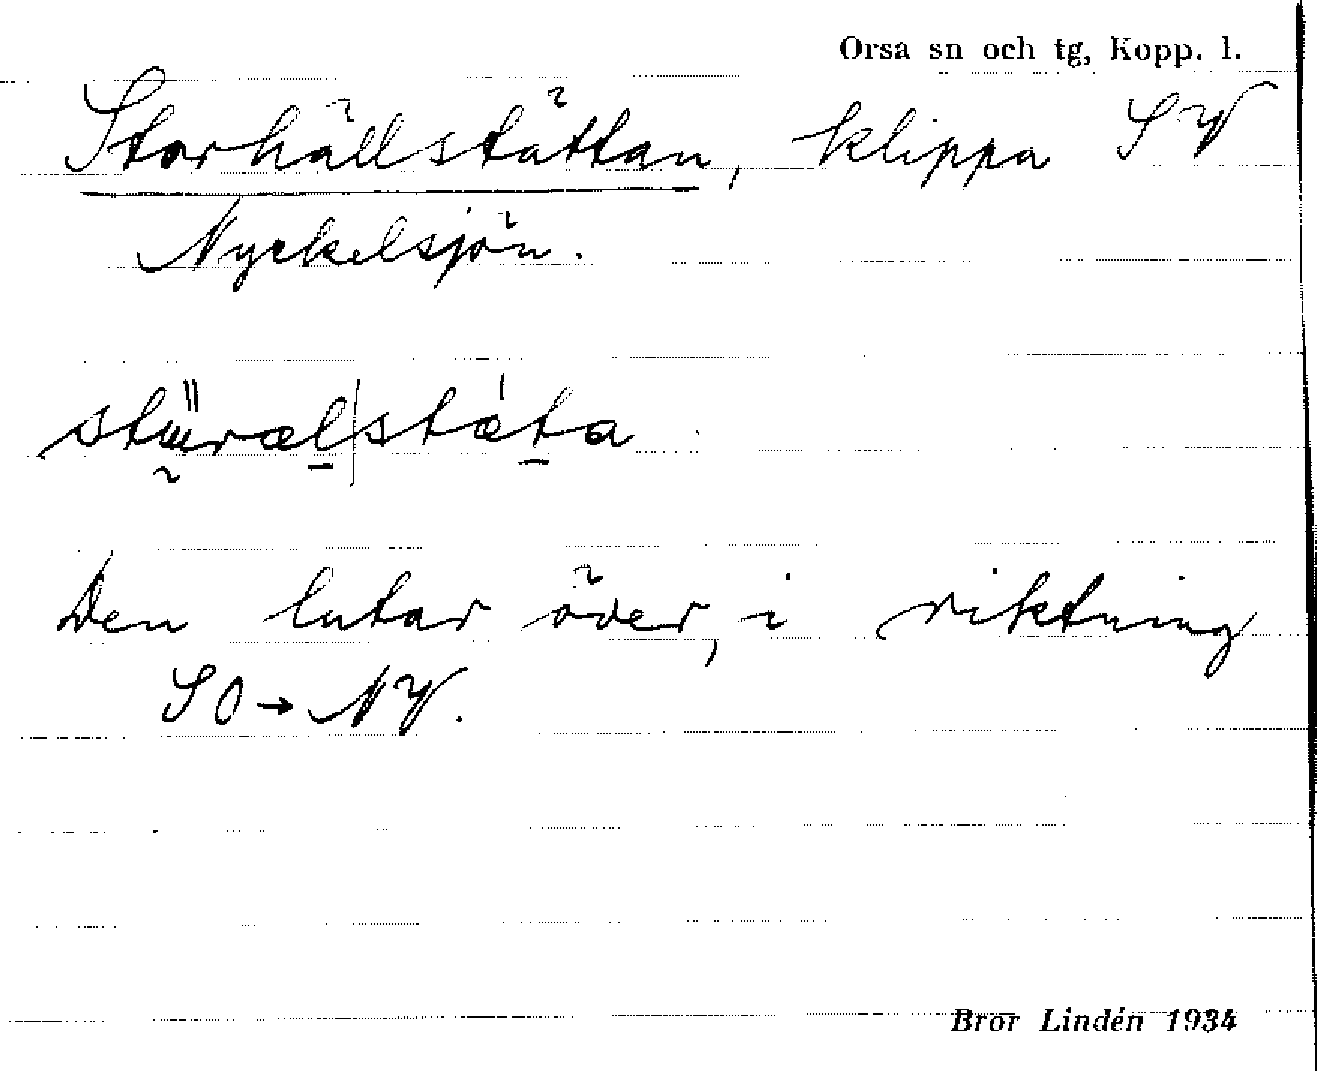 Orsa sn och tg, Kopp. l.
Storhällstättan, klippa SV
Nyckelsjön.
Den lutar över, i riktning
SO→NV.
Bror Lindén 1934